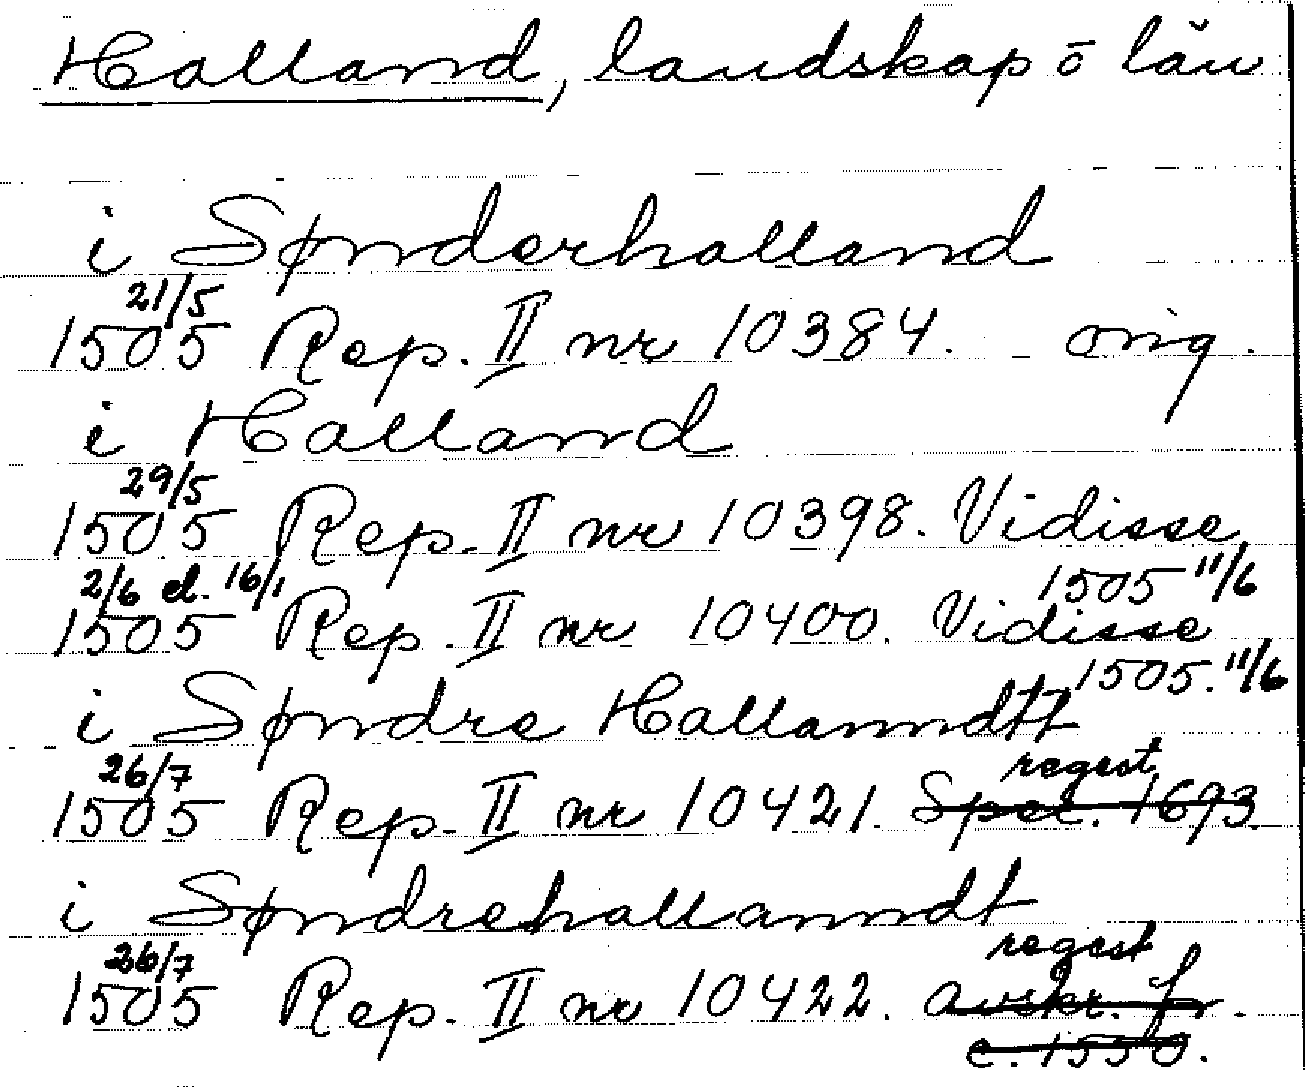 Halland, landskap ō län
i Sønderhalland
21/5
1505 Rep. II nr 10384. orig.
i Halland
29/5
1505 Rep. II nr 10398. Vidisse
2/6 el. 16/1 1505 11/6
1505 Rep. II nr 10400. Vidisse
1505. 11/6
i Søndre Hallanndtt
26/7 regest
1505 Rep. II nr 10421. Spec. 1693
i Søndrehallanndt
26/7 regest
1505 Rep. II nr 10422. avskr. fr.
c. 1550.